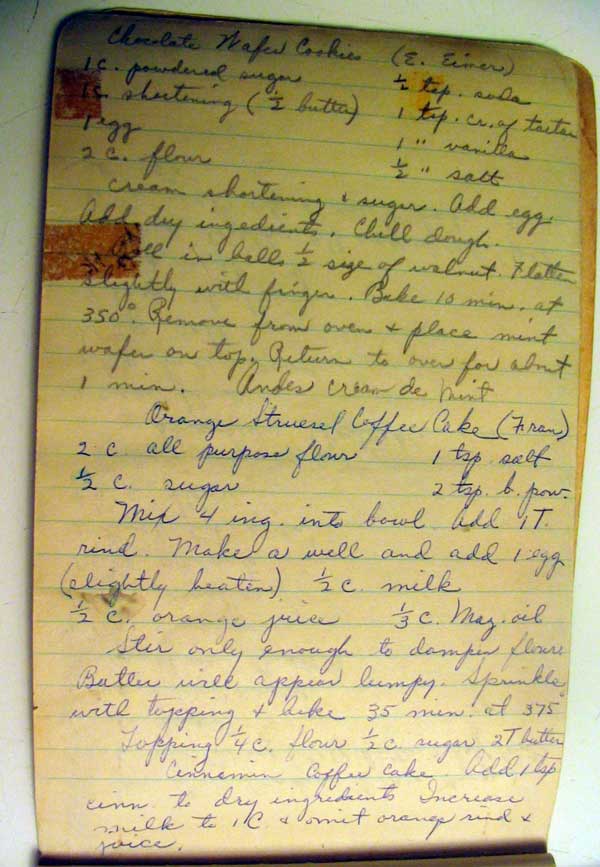 Chocolate Wafer Cookies (E. Eimer)
1 c. powdered sugar ½ tsp. soda
1 c. shortening (½ butter) 1 tsp. cr. of tartar
1 egg 1 " vanilla
2 c. flour ½ " salt
Cream shortening & sugar. Add egg.
Add dry ingedients. Chill dough.
in balls ½ size of walnut. Flatten
slightly with finger. Bake 10 min. at
350°. Remove from oven & place mint
wafer on top. Return to oven for about
1 min. Andes cream de Mint
Orange Struesel Coffee Cake (Fran)
2 c. all purpose flour 1 tsp. salt
½ c. sugar 2 tsp. b. pow.
Mix 4 ing. into bowl add 1 T.
rind. Make a well and add 1 egg
(slightly beaten) ½ c. milk
½ c. orange juice ⅓ c. Maz. oil
Stir only enough to dampen flour.
Batter will appear lumpy. Sprinkle
with topping & bake 35 min. at 375°
Topping ¼ c. flour ½ c. sugar 2T butter
Cinnemin Coffee Cake. Add 1 tsp
cinn. to dry ingredients Increase
milk to 1 C. & omit orange rind &
juice.